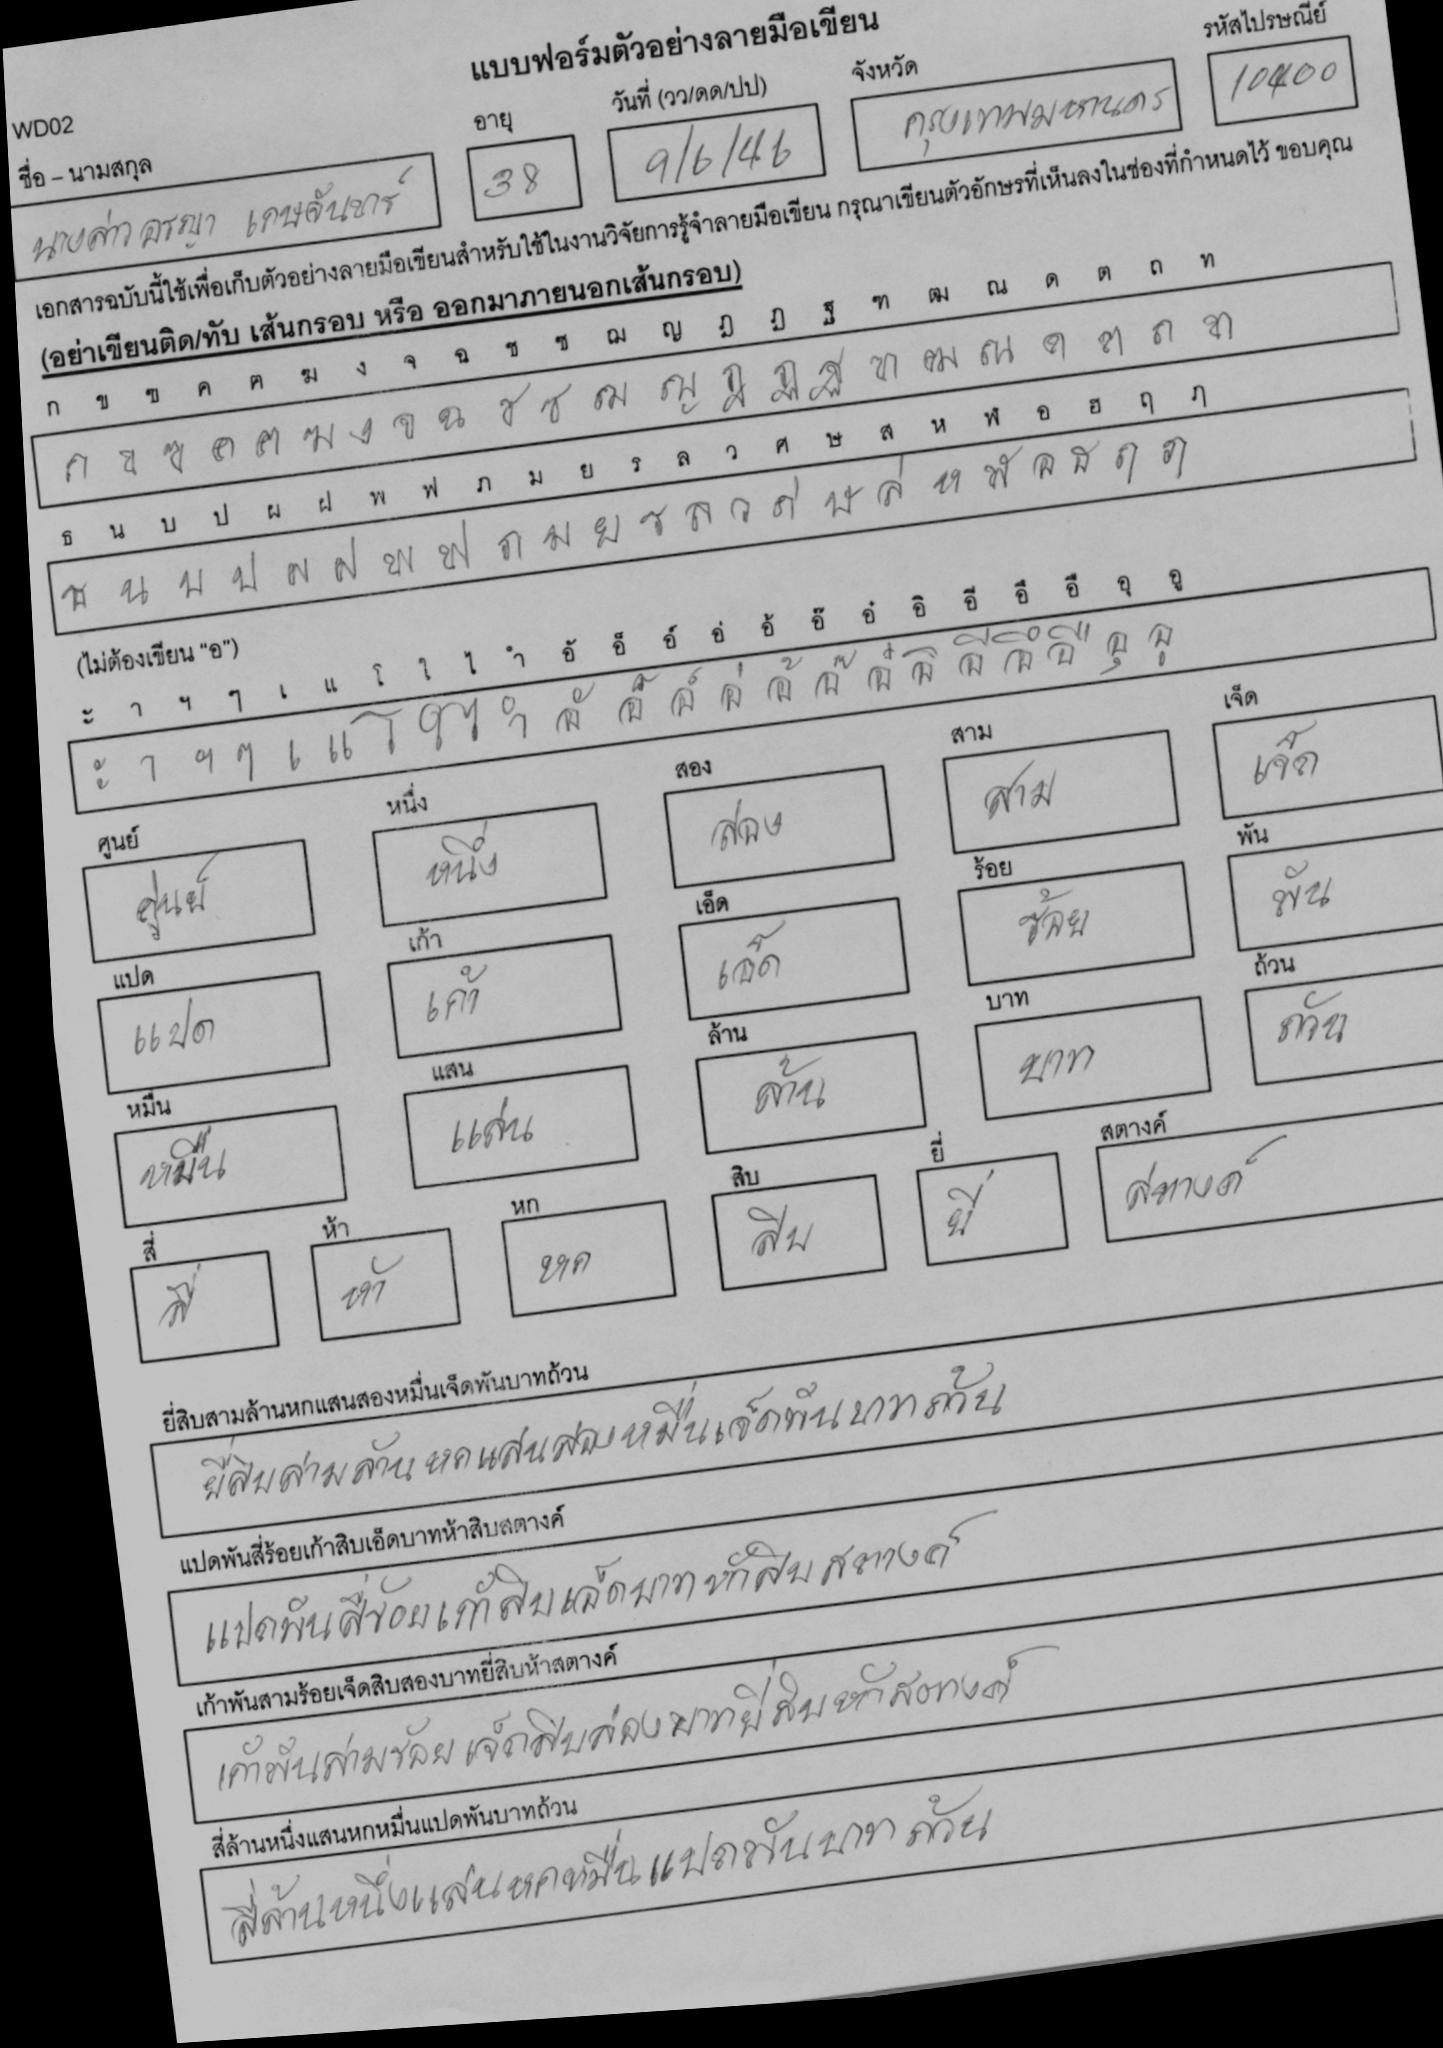 แบบฟอร์มตัวอย่างลายมือเขียน
WD02
ชื่อ – นามสกุล อายุ วันที่ (วว/ดด/ปป) จังหวัด รหัสไปรษณีย์
นางสาว อรญา 38 9/6/46 กรุงเทพมหานคร 10400
เอกสารฉบับนี้ใช้เพื่อเก็บตัวอย่างลายมือเขียนสำหรับใช้ในงานวิจัยการรู้จำลายมือเขียน กรุณาเขียนตัวอักษรที่เห็นลงในช่องที่กำหนดไว้ ขอบคุณ
(อย่าเขียนติด/ทับ เส้นกรอบ หรือ ออกมาภายนอกเส้นกรอบ)
ก ข ฃ ค ฅ ฆ ง จ ฉ ช ซ ฌ ญ ฎ ฏ ฐ ฑ ฒ ณ ด ต ถ ท
ก ข ฃ ค ฅ ฆ ง จ ฉ ช ซ ฌ ญ ฎ ฏ ฐ ฑ ฒ ณ ด ต ถ ท
ธ น บ ป ผ ฝ พ ฟ ภ ม ย ร ล ว ศ ษ ส ห ฬ อ ฮ ฤ ภ
ธ น บ ป ผ ฝ พ ฟ ภ ม ย ร ล ว ศ ษ ส ห ฬ อ ฮ ฤ ภ
(ไม่ต้องเขียน "อ")
ะ า ฯ ๆ เ แ โ ใ ไ ำ อั อ็ อ์ อ่ อ้ อ๊ อ๋ อิ อี อึ อื อุ อู
ะ า ฯ ๆ เ แ โ ใ ไ ำ อั อ็ อ์ อ่ อ้ อ๊ อ๋ อิ อี อึ อื อุ อู
ศูนย์ หนึ่ง สอง สาม เจ็ด
ศูนย์ หนึ่ง สอง สาม เจ็ด
แปด เก้า เอ็ด ร้อย พัน
แปด เก้า เอ็ด ร้อย พัน
หมื่น แสน ล้าน บาท ถ้วน
หมื่น แสน ล้าน บาท ถ้วน
สี่ ห้า หก สิบ ยี่ สตางค์
สี่ ห้า หก สิบ ยี่ สตางค์
ยี่สิบสามล้านหกแสนสองหมื่นเจ็ดพันบาทถ้วน
ยี่สิบสามล้านหกแสนสองหมื่นเจ็ดพันบาทถ้วน
แปดพันสี่ร้อยเก้าสิบเอ็ดบาทห้าสิบสตางค์
แปดพันสี่ร้อยเก้าสิบเอ็ดบาทห้าสิบสตางค์
เก้าพันสามร้อยเจ็ดสิบสองบาทยี่สิบห้าสตางค์
เก้าพันสามร้อยเจ็ดสิบสองบาทยี่สิบห้าสตางค์
สี่ล้านหนึ่งแสนหกหมื่นแปดพันบาทถ้วน
สี่ล้านหนึ่งแสนหกหมื่นแปดพันบาทถ้วน